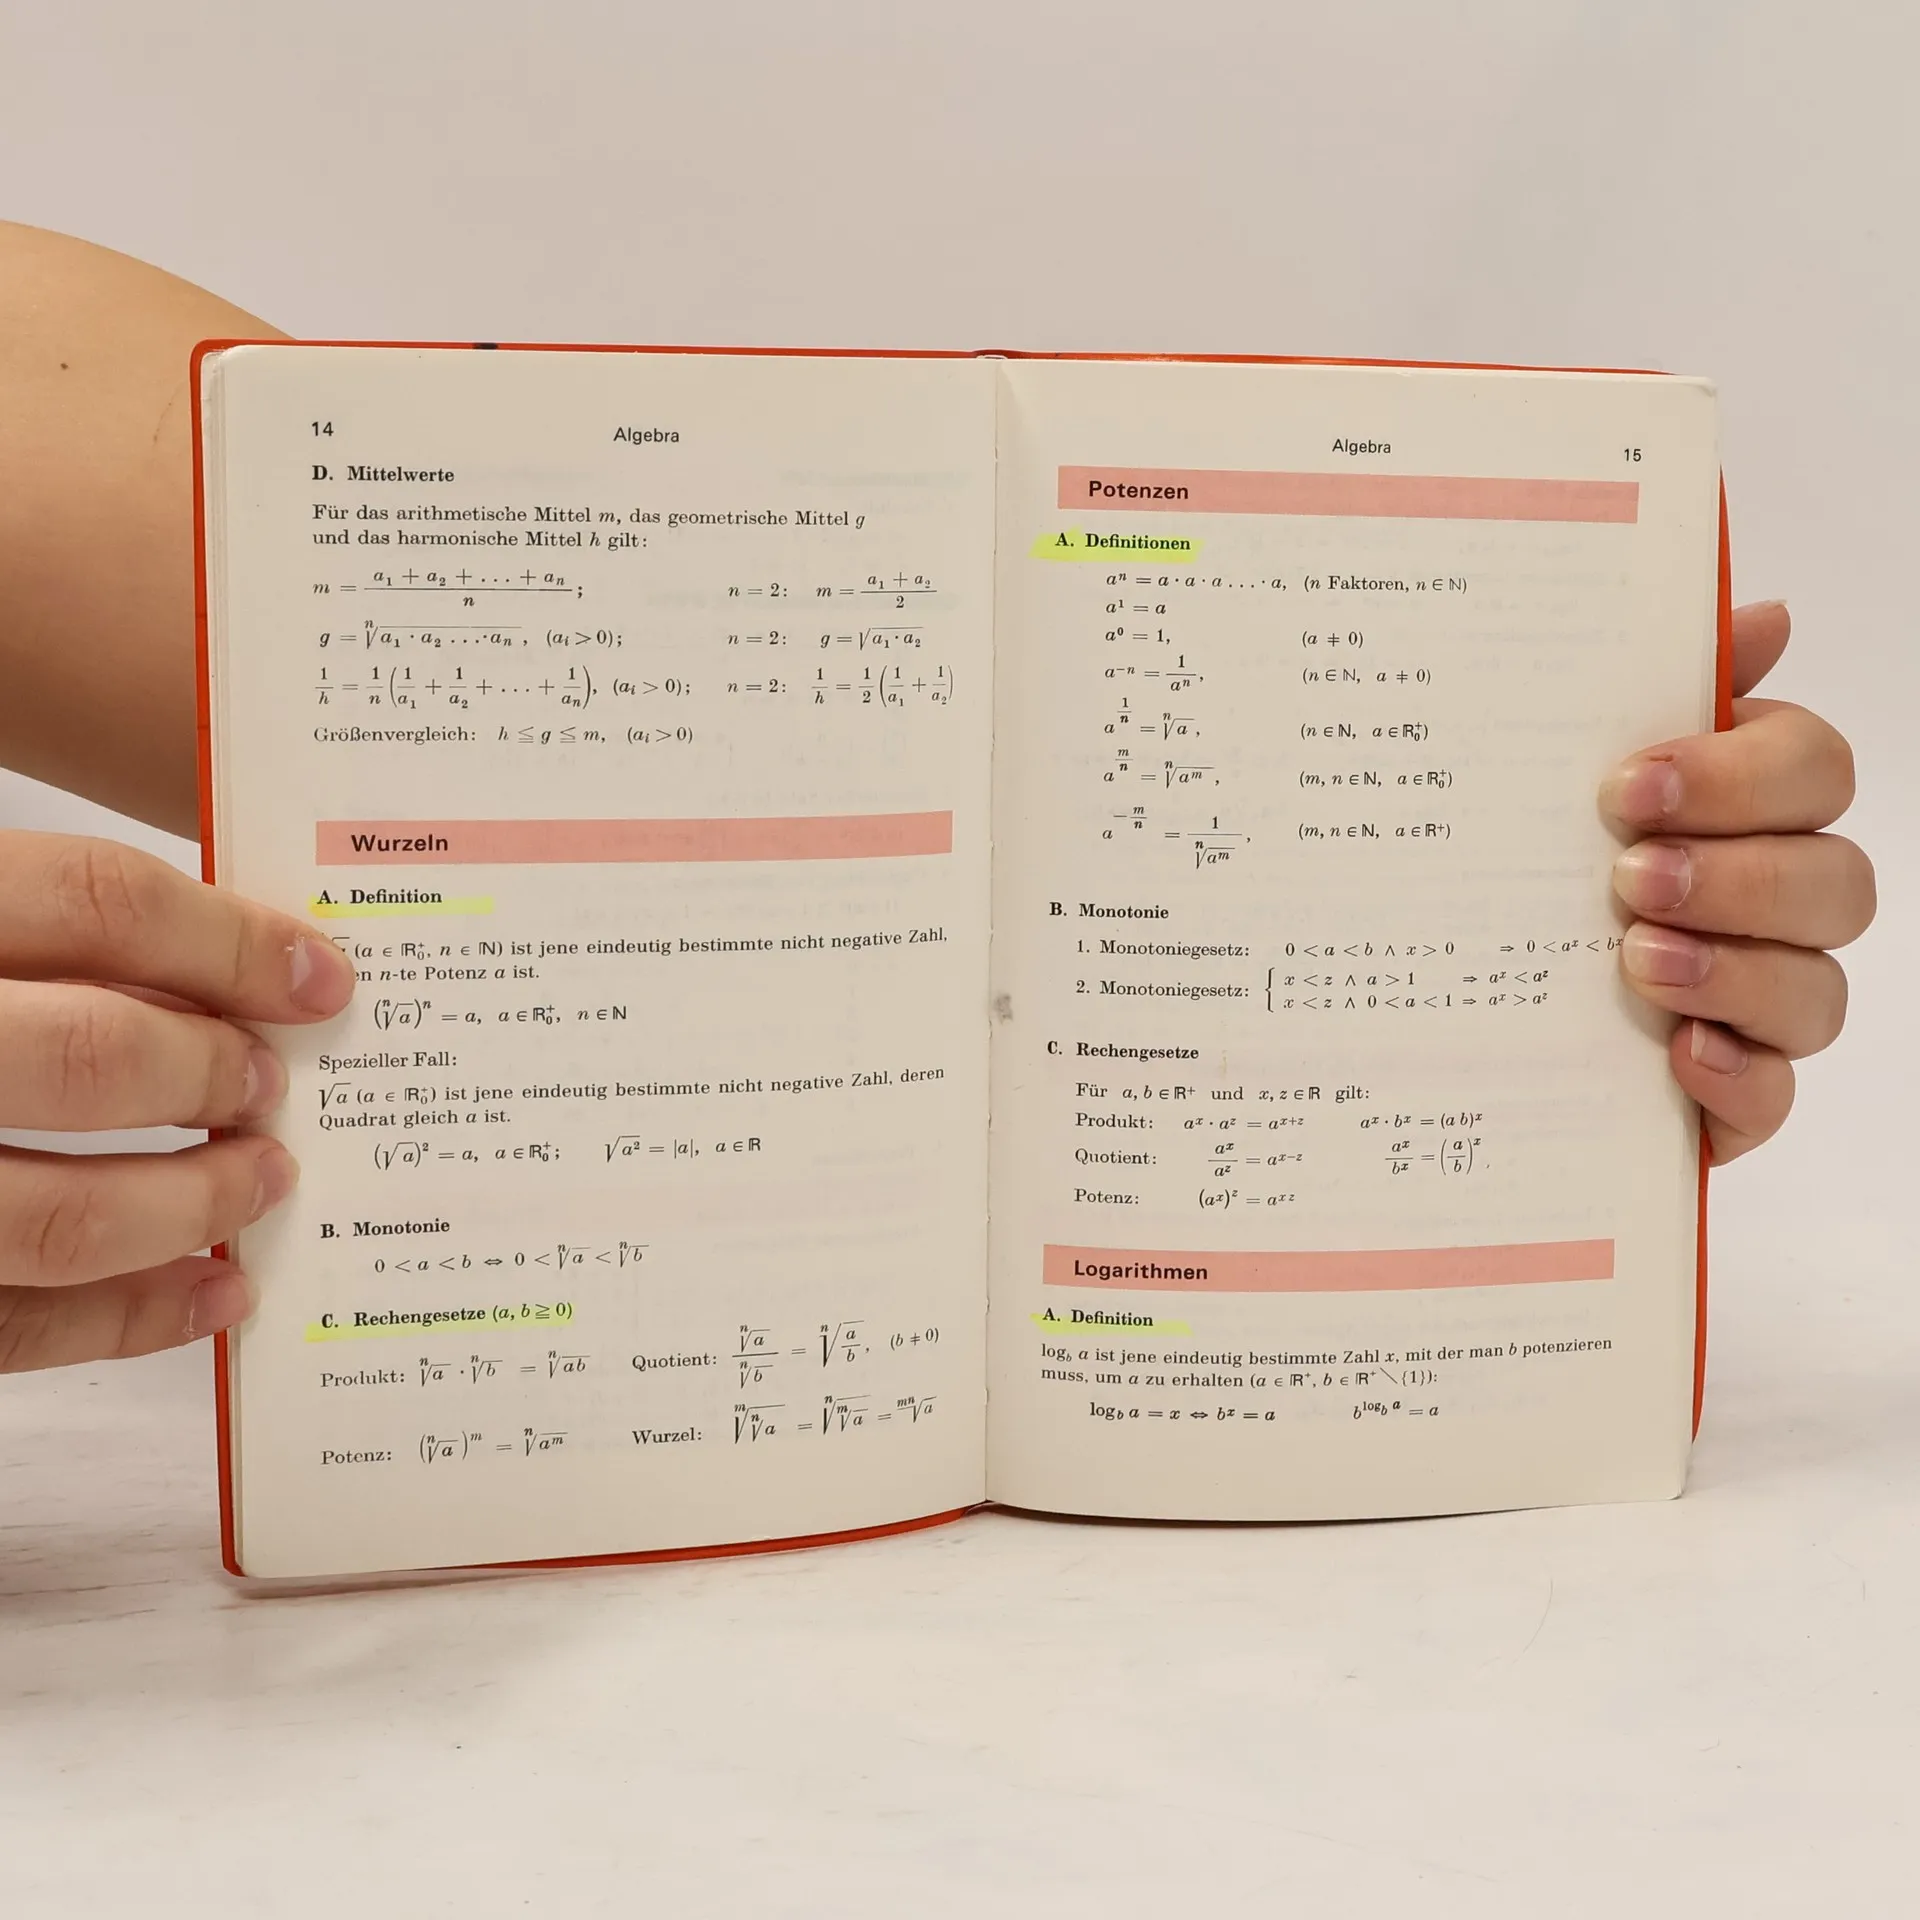 14
Algebra
D. Mittelwerte
Für das arithmetische Mittel m, das geometrische Mittel g
und das harmonische Mittel h gilt:
m = (a₁ + a₂ + . . . + aₙ)/n ; n = 2: m = (a₁ + a₂)/2
g = ⁿ√(a₁ · a₂ . . . · aₙ) , (aᵢ > 0); n = 2: g = √(a₁ · a₂)
1/h = 1/n (1/a₁ + 1/a₂ + . . . + 1/aₙ), (aᵢ > 0); n = 2: 1/h = 1/2 (1/a₁ + 1/a₂)
Größenvergleich: h ≦ g ≦ m, (aᵢ > 0)
Wurzeln
A. Definition
(a ∈ ℝ₀⁺, n ∈ ℕ) ist jene eindeutig bestimmte nicht negative Zahl,
n-te Potenz a ist.
(ⁿ√a)ⁿ = a, a ∈ ℝ₀⁺, n ∈ ℕ
Spezieller Fall:
√a (a ∈ ℝ₀⁺) ist jene eindeutig bestimmte nicht negative Zahl, deren
Quadrat gleich a ist.
(√a)² = a, a ∈ ℝ₀⁺; √a² = |a|, a ∈ ℝ
B. Monotonie
0 < a < b ⇔ 0 < ⁿ√a < ⁿ√b
C. Rechengesetze (a, b ≧ 0)
Produkt: ⁿ√a · ⁿ√b = ⁿ√ab Quotient: ⁿ√a / ⁿ√b = ⁿ√(a/b), (b ≠ 0)
Potenz: (ⁿ√a)ᵐ = ⁿ√aᵐ Wurzel: ᵐ√(ⁿ√a) = ⁿ√(ᵐ√a) = ᵐⁿ√a
Algebra
15
Potenzen
A. Definitionen
aⁿ = a · a · a . . . . · a, (n Faktoren, n ∈ ℕ)
a¹ = a
a⁰ = 1, (a ≠ 0)
a⁻ⁿ = 1/aⁿ, (n ∈ ℕ, a ≠ 0)
a^(1/n) = ⁿ√a , (n ∈ ℕ, a ∈ ℝ₀⁺)
a^(m/n) = ⁿ√aᵐ , (m, n ∈ ℕ, a ∈ ℝ₀⁺)
a^(−m/n) = 1/ⁿ√aᵐ , (m, n ∈ ℕ, a ∈ ℝ⁺)
B. Monotonie
1. Monotoniegesetz: 0 < a < b ∧ x > 0 ⇒ 0 < aˣ < bˣ
2. Monotoniegesetz: { x < z ∧ a > 1 ⇒ aˣ < aᶻ
x < z ∧ 0 < a < 1 ⇒ aˣ > aᶻ
C. Rechengesetze
Für a, b ∈ ℝ⁺ und x, z ∈ ℝ gilt:
Produkt: aˣ · aᶻ = aˣ⁺ᶻ aˣ · bˣ = (a b)ˣ
Quotient: aˣ/aᶻ = aˣ⁻ᶻ aˣ/bˣ = (a/b)ˣ,
Potenz: (aˣ)ᶻ = aˣ ᶻ
Logarithmen
A. Definition
log_b a ist jene eindeutig bestimmte Zahl x, mit der man b potenzieren
muss, um a zu erhalten (a ∈ ℝ⁺, b ∈ ℝ⁺ \ {1}):
log_b a = x ⇔ bˣ = a b^(log_b a) = a